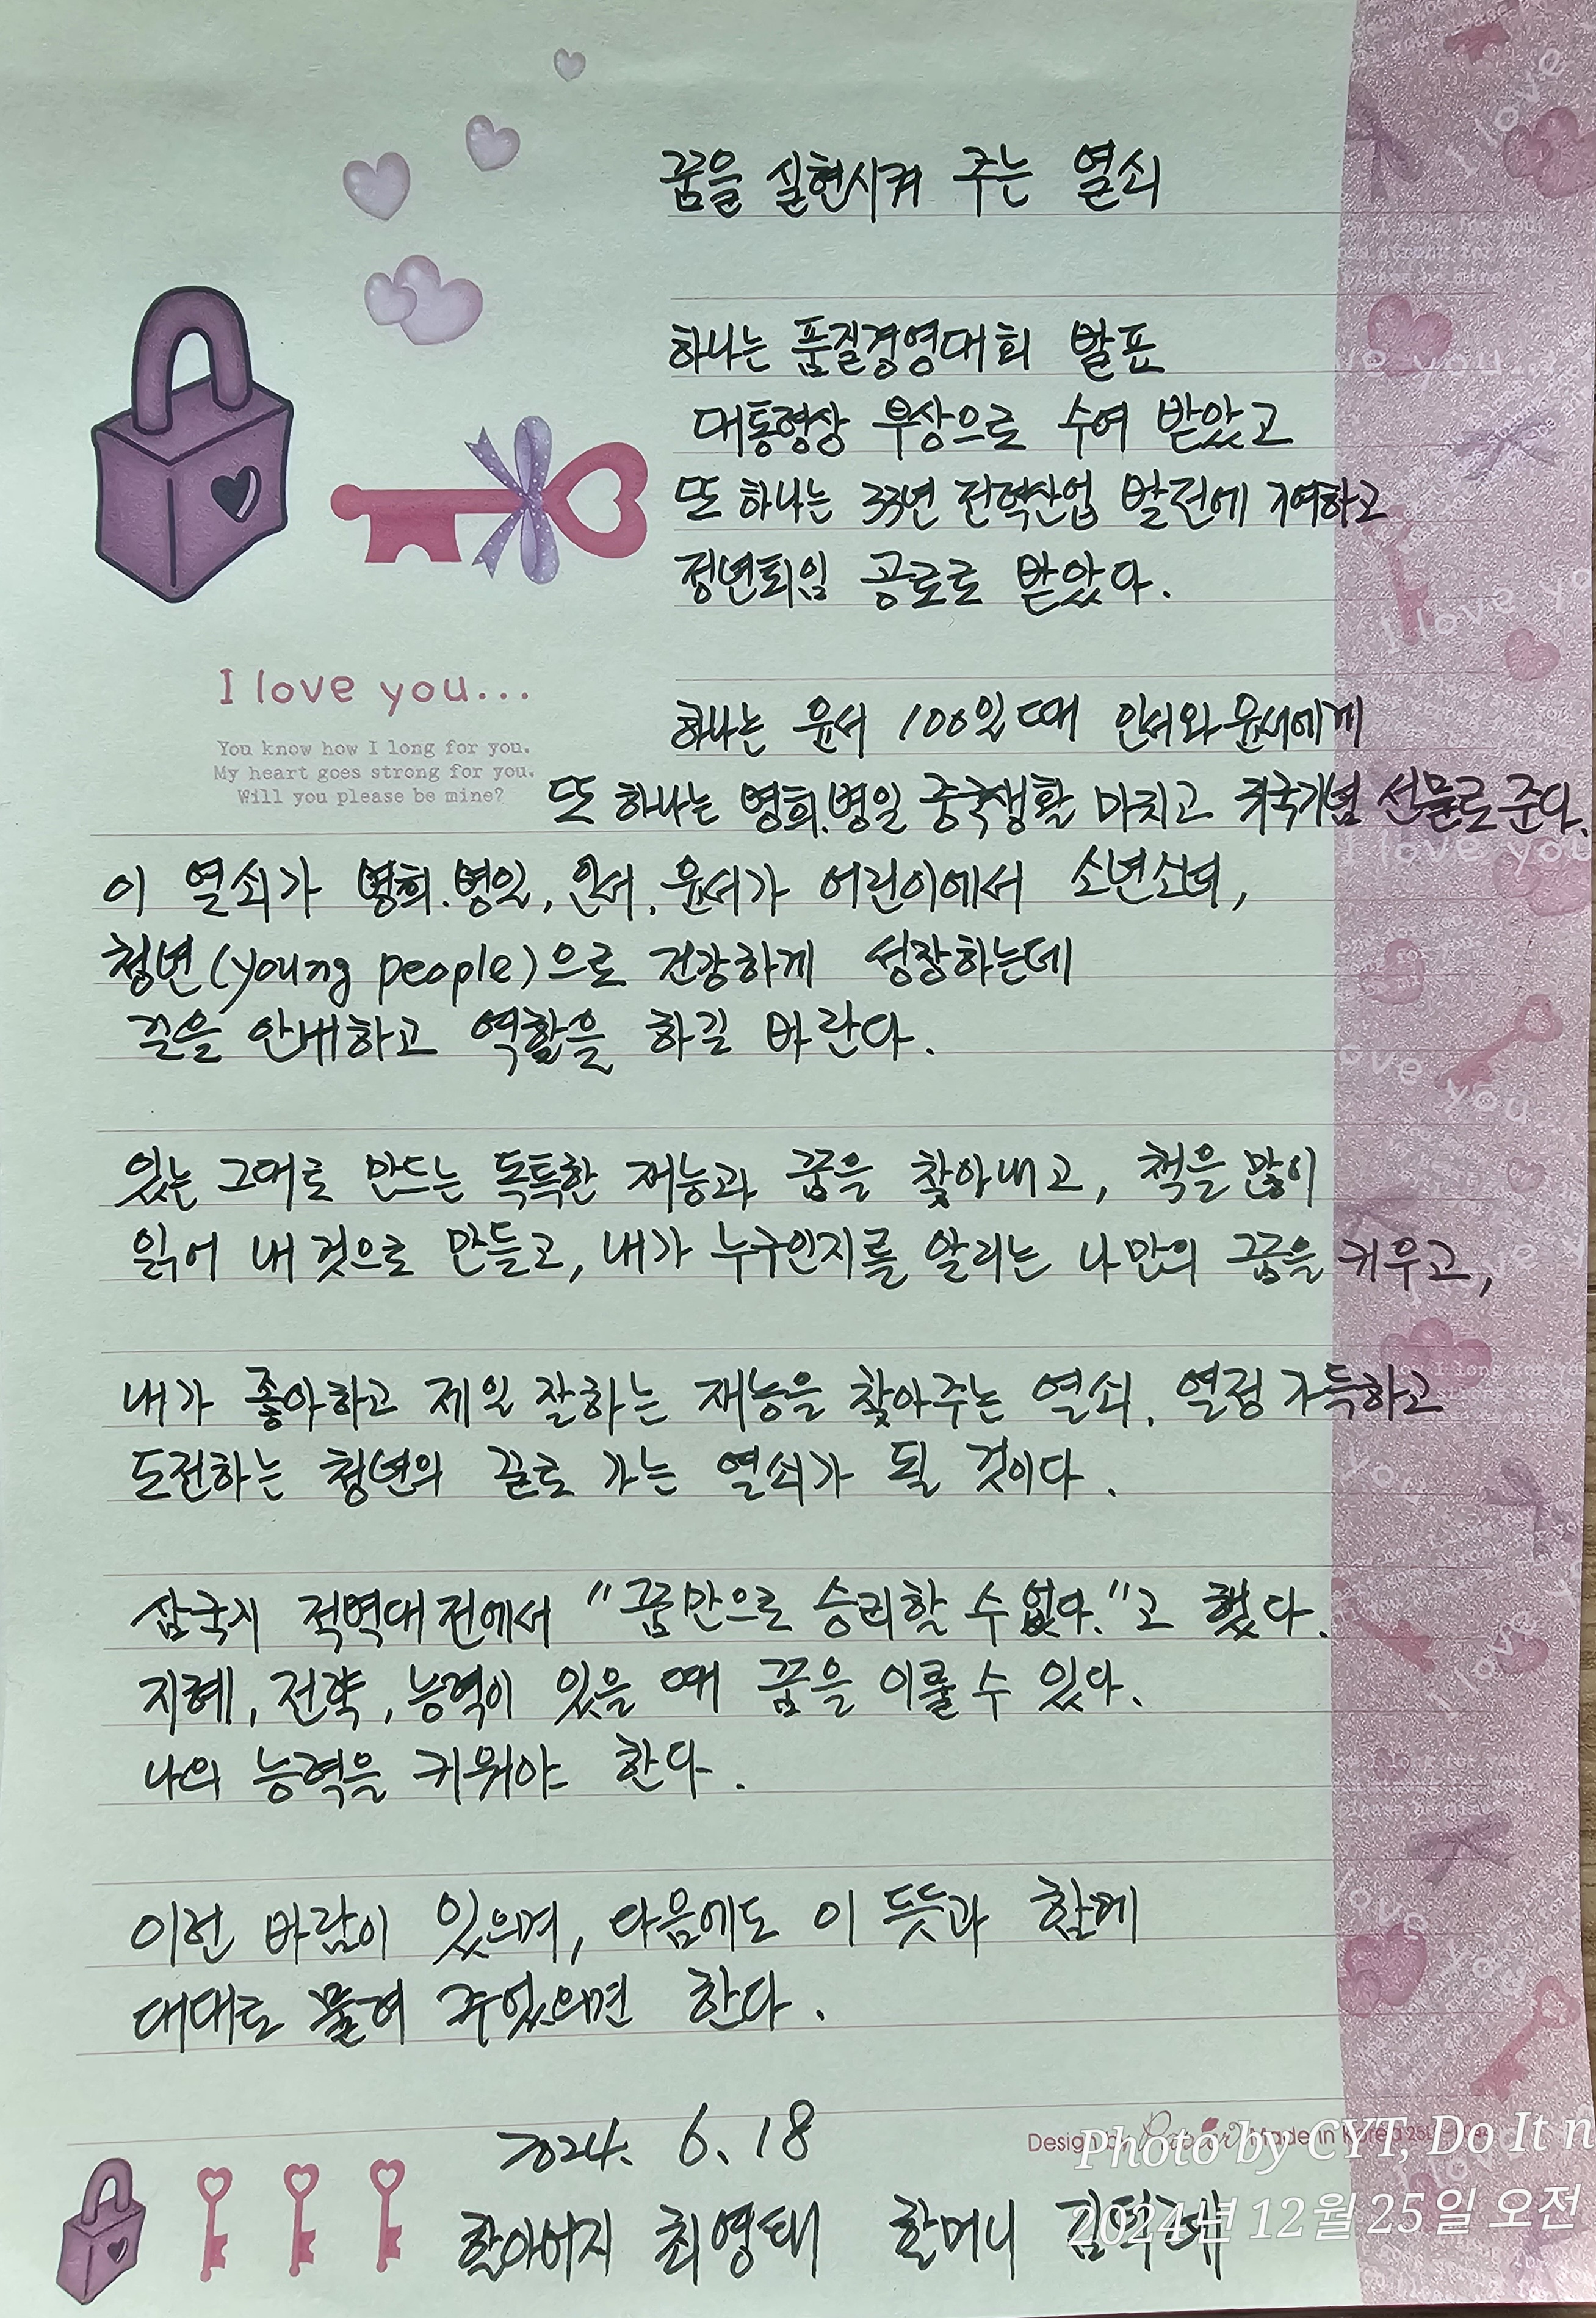 꿈을 실현시켜 주는 열쇠
하나는 품질경영대회 발표
대통령상 부상으로 수여 받았고
또 하나는 33년 전력산업 발전에 기여하고
정년퇴임 공로로 받았다.
I love you...
You know how I long for you.
My heart goes strong for you.
Will you please be mine?
하나는 윤서 100일때 인서와 윤서에게
또 하나는 명희.병일 중국생활 마치고 귀국기념 선물로 준다.
이 열쇠가 명희.병일, 인서, 윤서가 어린이에서 소년소녀,
청년(young people)으로 건강하게 성장하는데
길을 안내하고 역할을 하길 바란다.
있는 그대로 만드는 독특한 재능과 꿈을 찾아내고, 책을 많이
읽어 내것으로 만들고, 내가 누구인지를 알리는 나만의 꿈을 키우고,
내가 좋아하고 제일 잘하는 재능을 찾아주는 열쇠, 열정 가득하고
도전하는 청년의 길로 가는 열쇠가 될 것이다.
삼국지 적벽대전에서 "꿈만으로 승리할 수 없다."고 했다.
지혜, 전략, 능력이 있을 때 꿈을 이룰 수 있다.
나의 능력을 키워야 한다.
이런 바람이 있으며, 다음에도 이 뜻과 함께
대대로 물려 주었으면 한다.
2024. 6. 18
Design by Made in Korea
Photo by CYT, Do It n
2024년 12월 25일 오전
할아버지 최영태 할머니 김